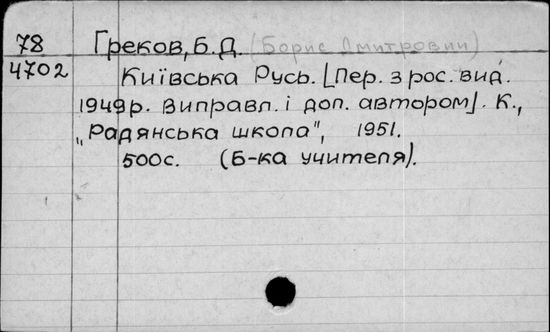 78 Греков, Б.Д. (Борис Дмитрович)
4702 Київська Русь. [Пер. з рос. вид.
1949р. Виправл. і доп. автором]. К.,
„Радянська школа", 1951.
500с. (Б-ка учителя).